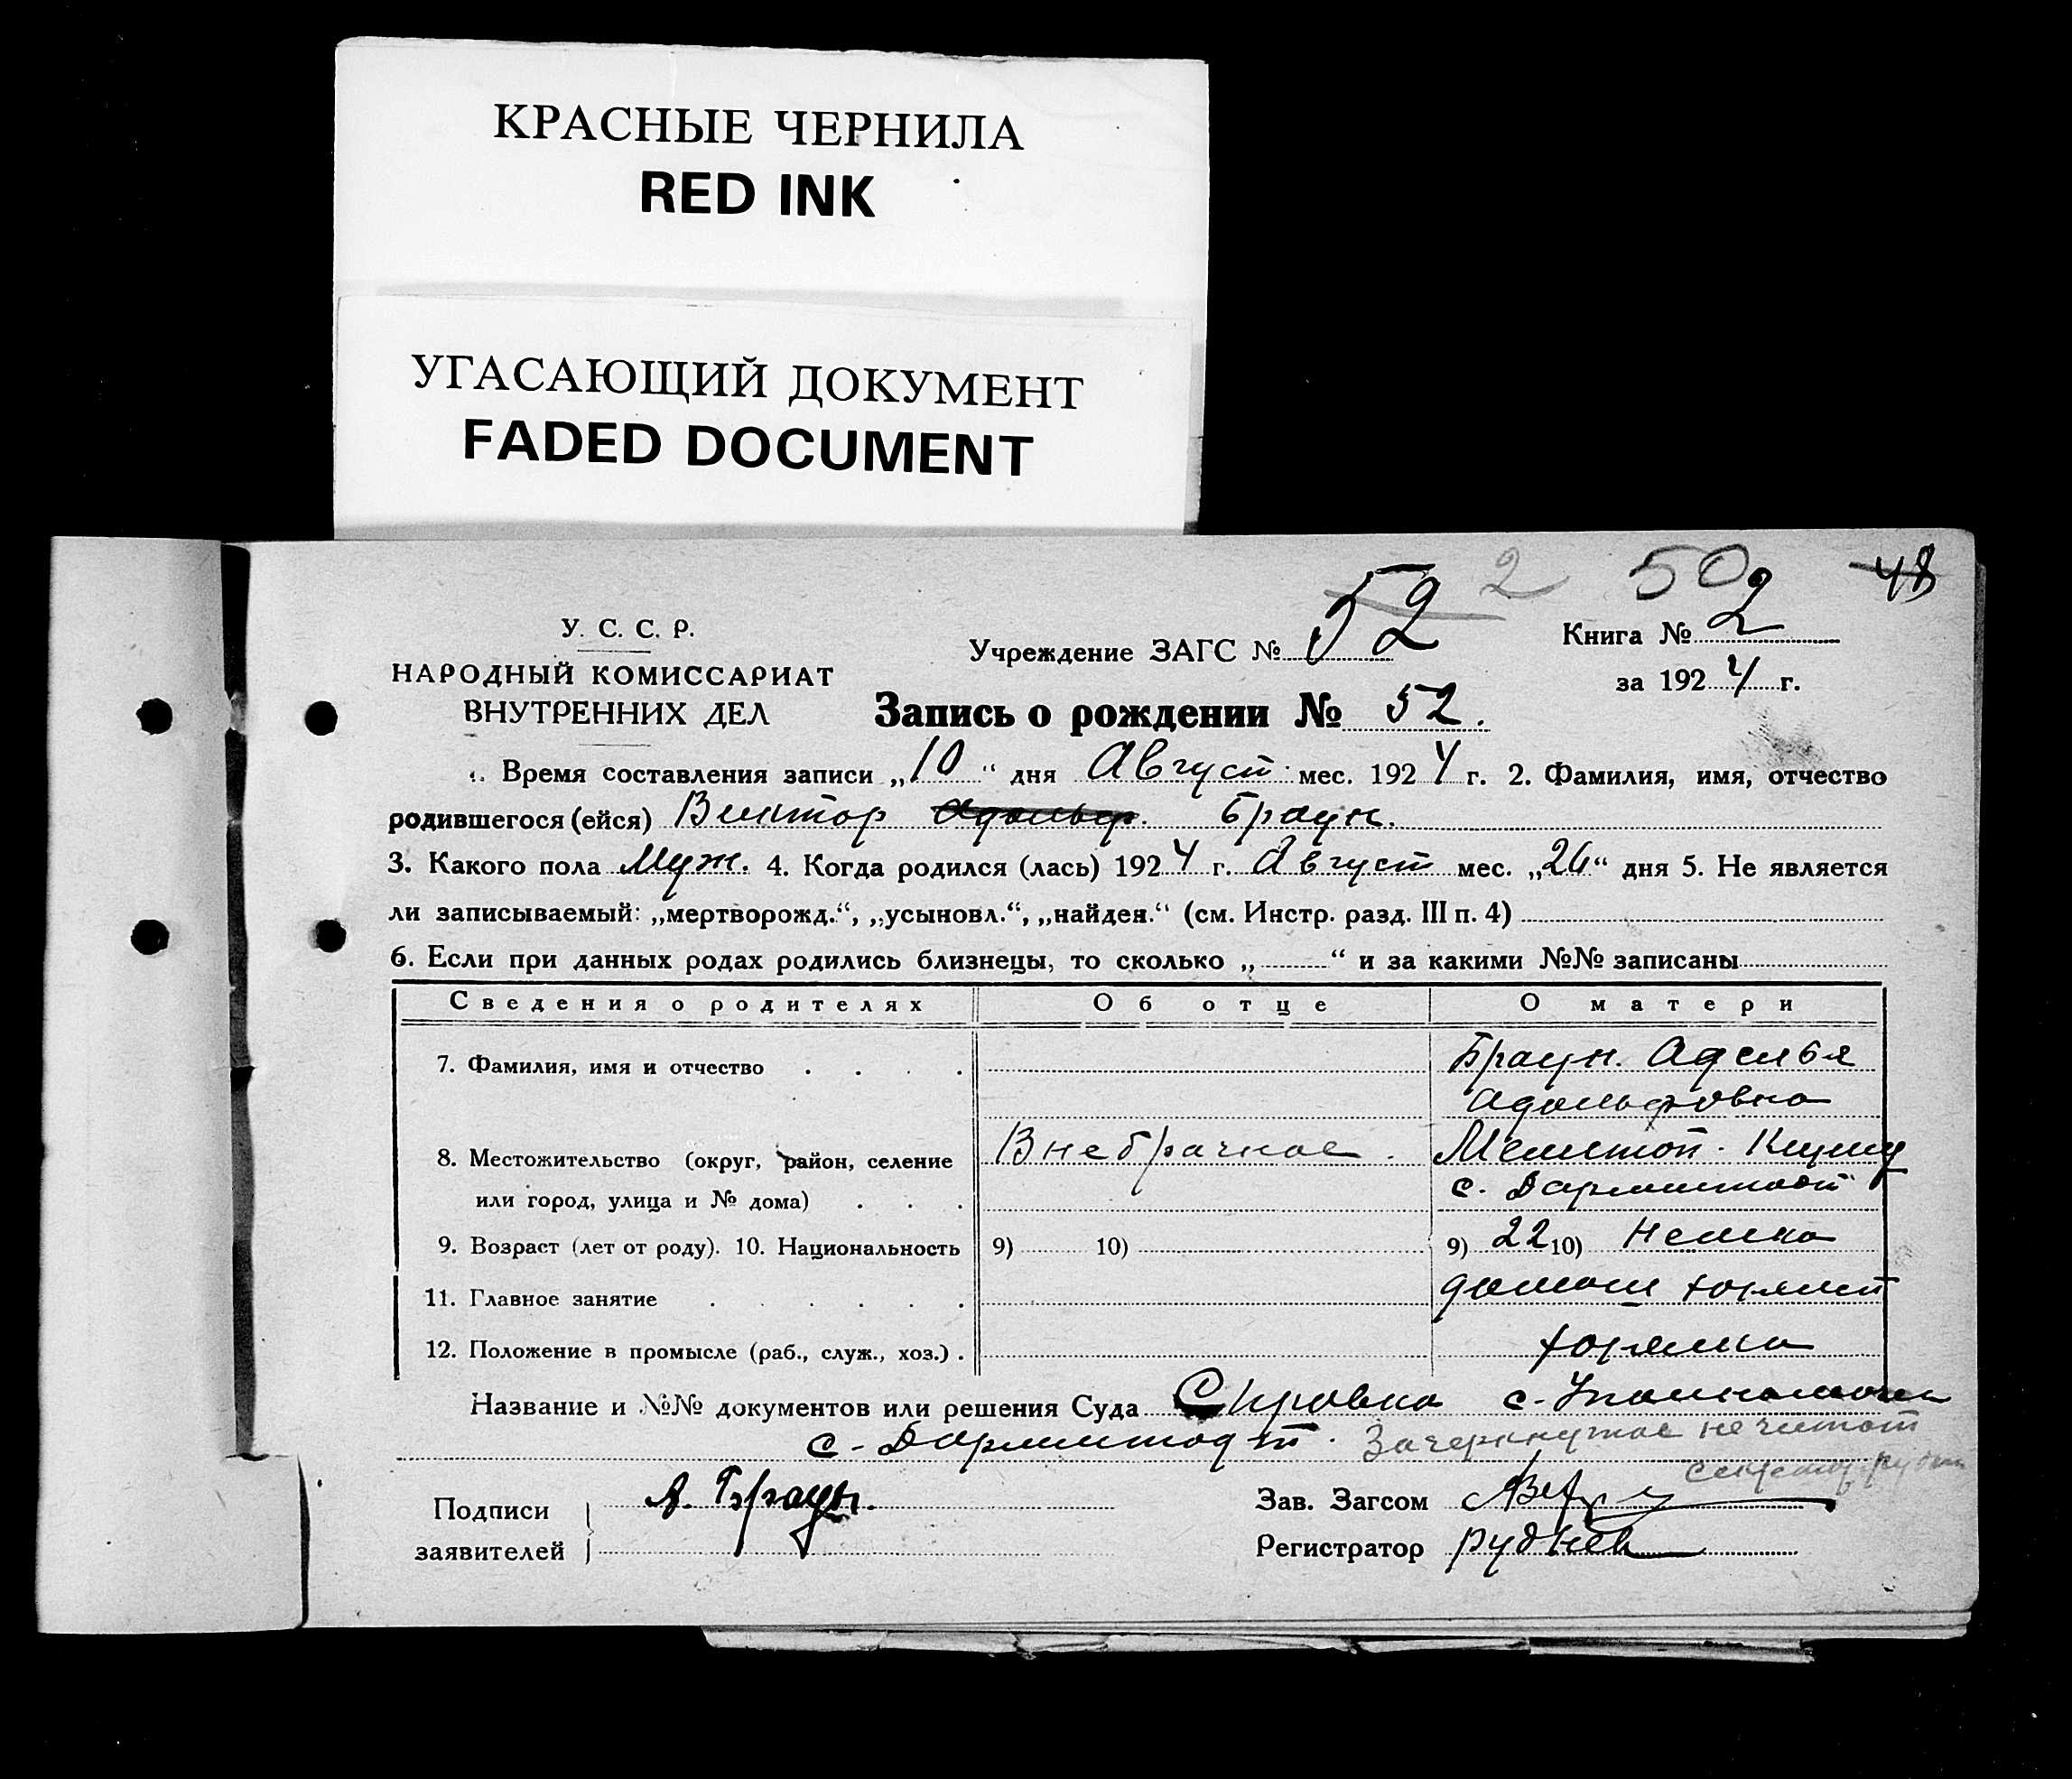 КРАСНЫЕ ЧЕРНИЛА
RED INK
УГАСАЮЩИЙ ДОКУМЕНТ
FADED DOCUMENT
2 50 48
У. С. С. Р.
НАРОДНЫЙ КОМИССАРИАТ
ВНУТРЕННИХ ДЕЛ
Учреждение ЗАГС № 52
Книга № 2
за 1924 г.
Запись о рождении № 52.
1. Время составления записи „10“ дня Август мес. 1924 г. 2. Фамилия, имя, отчество
родившегося (ейся) Виктор Адольф. Браун.
3. Какого пола Муж. 4. Когда родился (лась) 1924 г. Август мес. „26“ дня 5. Не является
ли записываемый: „мертворожд.“, „усыновл.“, „найден.“ (см. Инстр. разд. III п. 4)
6. Если при данных родах родились близнецы, то сколько „ “ и за какими №№ записаны
Сведения о родителях Об отце О матери
7. Фамилия, имя и отчество Браун. Аделья
Адольфовна
8. Местожительство (округ, район, селение Внебрачное. Мелитоп.
или город, улица и № дома) с. Дармштадт
9. Возраст (лет от роду). 10. Национальность 9) 10) 9) 22 10) Немка
11. Главное занятие домаш
12. Положение в промысле (раб., служ., хоз.).
Название и №№ документов или решения Суда Справка с.
с. Дармштадт. Зачеркнутое не читать
Подписи заявителей А. Браун.
Зав. Загсом
Регистратор Руднев